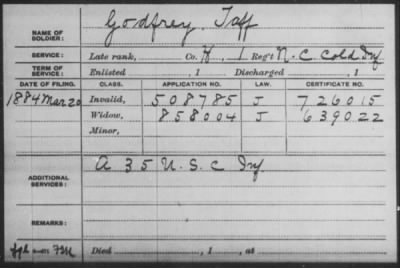 NAME OF SOLDIER: Godfrey, Taff
SERVICE: Late rank, Co. H, 1 Reg't N.C. Cold Inf
TERM OF SERVICE: Enlisted , 1 Discharged , 1
DATE OF FILING. CLASS. APPLICATION NO. LAW. CERTIFICATE NO.
1884 Mar 20 Invalid, 508785 J 726015
Widow, 858004 J 639022
Minor,
ADDITIONAL SERVICES: A 35 U.S.C Inf
REMARKS:
Died , 1 , at